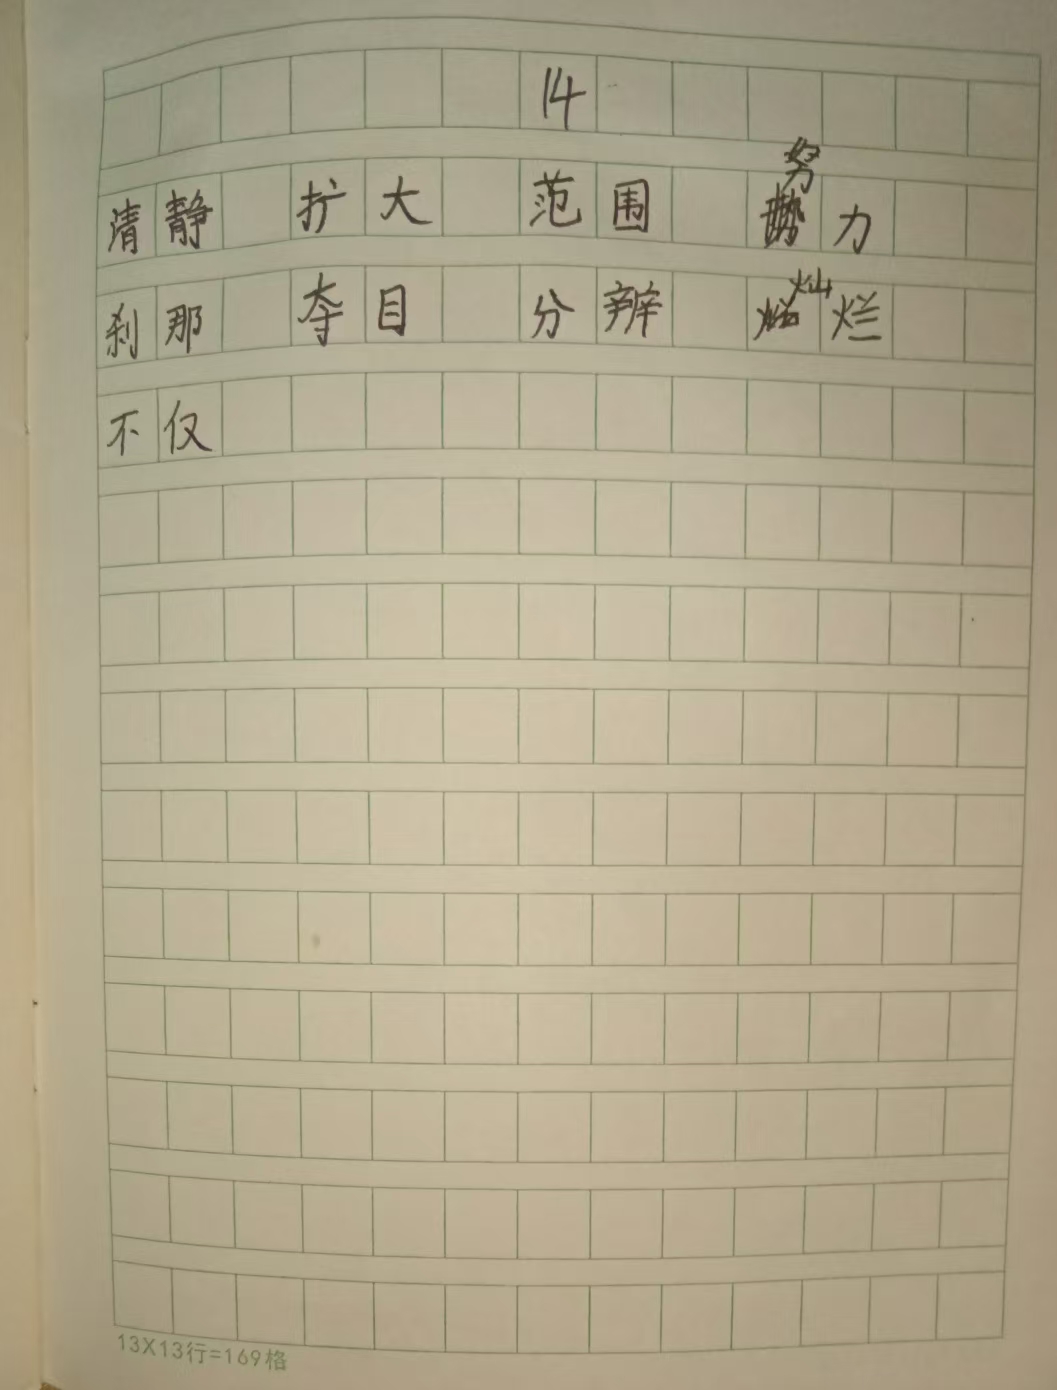 14
清静 扩大 范围 努力
刹那 夺目 分辨 灿烂
不仅
13X13行=169格